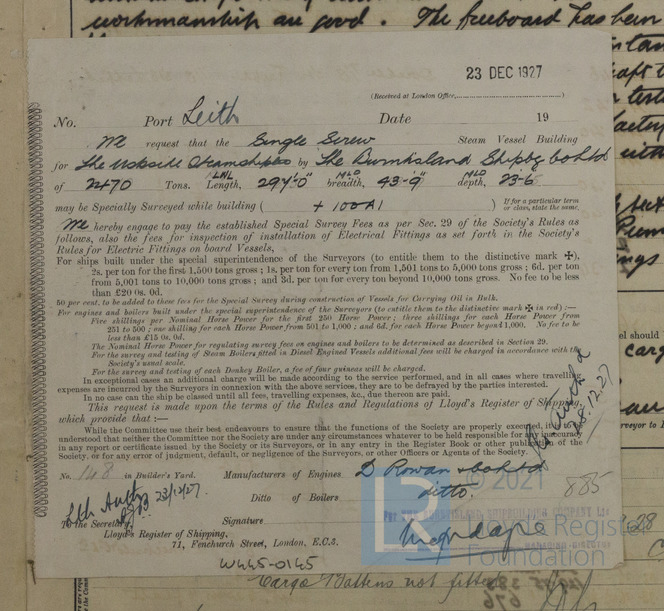 workmanship are good. The freeboard has been
23 DEC 1927
(Received at London Office,
No. Port Leith Date 19
We request that the Single Screw Steam Vessel Building
for The Uskside Steamship Co by The Burntisland Shipbg Co Ltd
of 2470 Tons. Length, 294'-0" breadth, 43'-9" depth, 23'-6"
may be Specially Surveyed while building ( + 100A1 ) If for a particular term or class, state the same.
We hereby engage to pay the established Special Survey Fees as per Sec. 29 of the Society's Rules as
follows, also the fees for inspection of installation of Electrical Fittings as set forth in the Society's
Rules for Electric Fittings on board Vessels,
For ships built under the special superintendence of the Surveyors (to entitle them to the distinctive mark ✠),
2s. per ton for the first 1,500 tons gross ; 1s. per ton for every ton from 1,501 tons to 5,000 tons gross ; 6d. per ton
from 5,001 tons to 10,000 tons gross ; and 3d. per ton for every ton beyond 10,000 tons gross. No fee to be less
than £20 0s. 0d.
50 per cent. to be added to these fees for the Special Survey during construction of Vessels for Carrying Oil in Bulk.
For engines and boilers built under the special superintendence of the Surveyors (to entitle them to the distinctive mark ✠ in red) :—
Five shillings per Nominal Horse Power for the first 250 Horse Power ; three shillings for each Horse Power from
251 to 500 ; one shilling for each Horse Power from 501 to 1,000 ; and 6d. for each Horse Power beyond 1,000. No fee to be
less than £15 0s. 0d.
The Nominal Horse Power for regulating survey fees on engines and boilers to be determined as described in Section 29.
For the survey and testing of Steam Boilers fitted in Diesel Engined Vessels additional fees will be charged in accordance with the
Society's usual scale.
For the survey and testing of each Donkey Boiler, a fee of four guineas will be charged.
In exceptional cases an additional charge will be made according to the service performed, and in all cases where travelling
expenses are incurred by the Surveyors in connection with the above services, they are to be defrayed by the parties interested.
In no case can the ship be classed until all fees, travelling expenses, &c., due thereon are paid.
This request is made upon the terms of the Rules and Regulations of Lloyd's Register of Shipping,
which provide that :—
While the Committee use their best endeavours to ensure that the functions of the Society are properly executed, it is to be
understood that neither the Committee nor the Society are under any circumstances whatever to be held responsible for any inaccuracy
in any report or certificate issued by the Society or its Surveyors, or in any entry in the Register Book or other publication of the
Society, or for any error of judgment, default, or negligence of the Surveyors, or other Officers or Agents of the Society.
No. 148 in Builder's Yard. Manufacturers of Engines D Rowan & Co Ltd
Ditto of Boilers ditto.
885
23/12/27
To the Secretary,
Signature
Lloyd's Register of Shipping,
71, Fenchurch Street, London, E.C.3.
W445-0145
© 2021
Lloyd's Register
Foundation
Cargo Battens not fitted